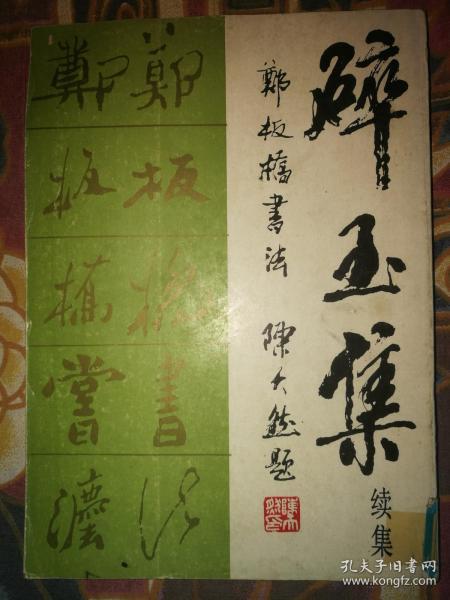 碎玉集
续集
鄭板橋書法 陳大 题
鄭板橋書法
鄭板橋書灋
孔夫子旧书网
www.kongfz.com